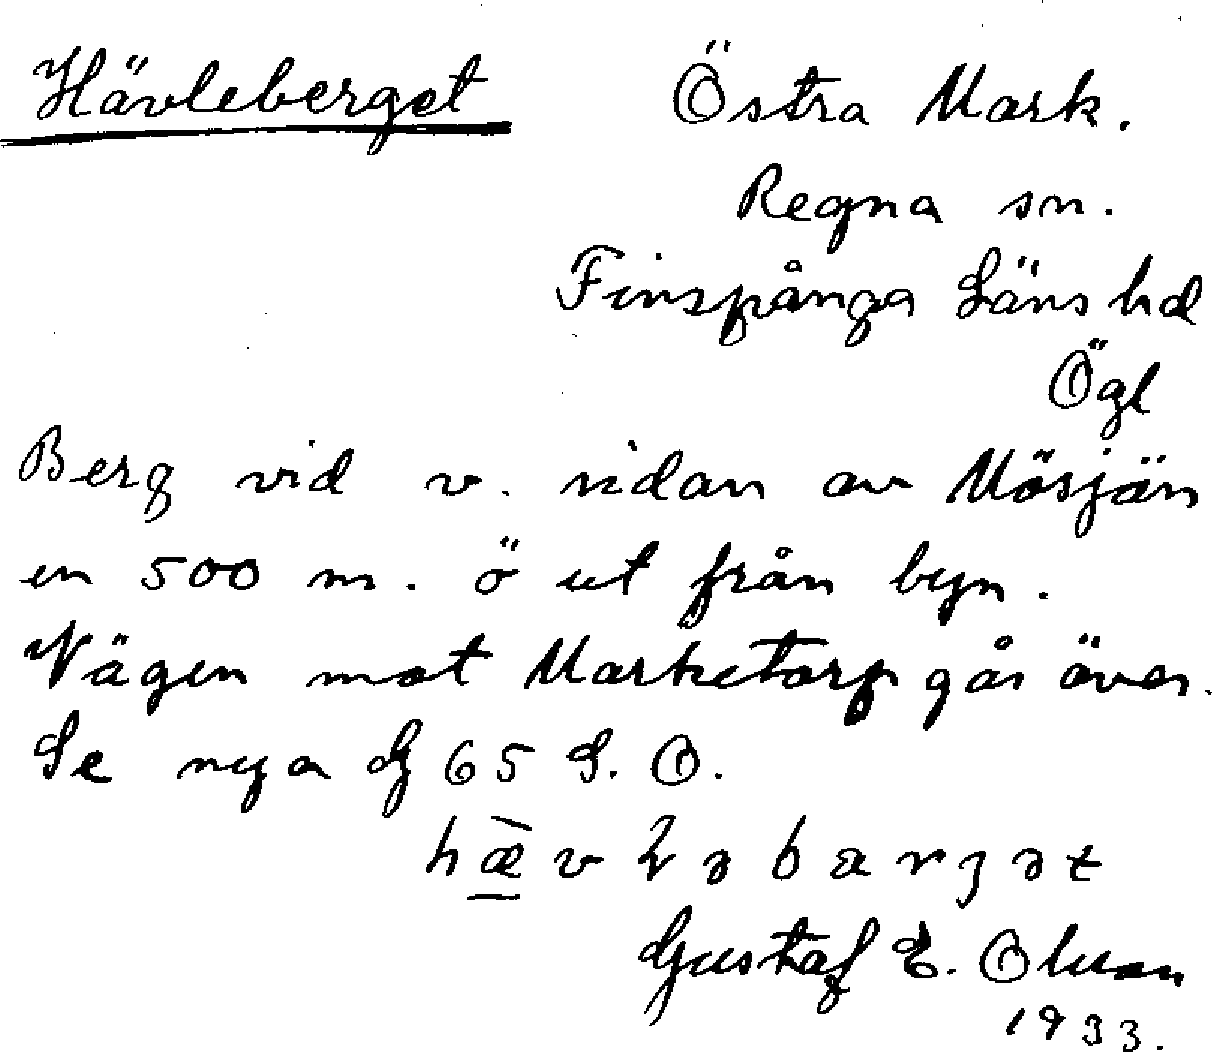 Hävleberget Östra Mark.
Regna sn.
Finspånga Läns hd
Ögl
Berg vid v. sidan av Mösjön
en 500 m. ö ut från byn.
Vägen mot Marketorp går över.
Se nya G 65 S. O.
Gustaf E. Olsson
1933.